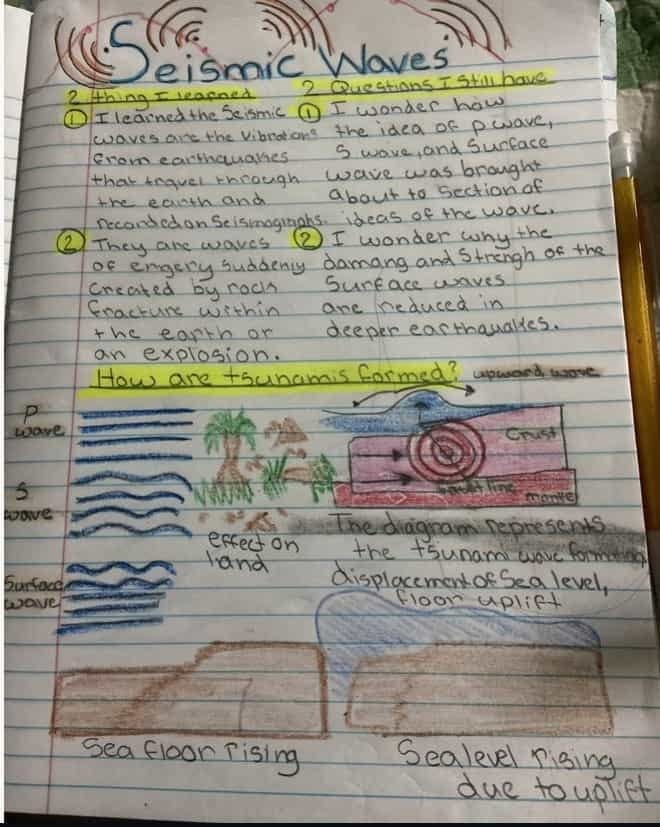 Seismic Waves
2 thing I learned
① I learned the Seismic
waves are the Vibrations
from earthquakes
that travel through
the earth and
recorded on Seismographs.
② They are waves
of engery Suddenly
Created by rock
fracture within
the earth or
an explosion.
2 Questions I Still have
① I wonder how
the idea of p wave,
S wave, and Surface
wave was brought
about to Section of
ideas of the wave.
② I wonder why the
damang and Strengh of the
Surface waves
are reduced in
deeper earthquakes.
How are tsunamis formed?
upward wave
P
wave
S
wave
Surface
wave
effect on
land
Crust
fault line
mantle
The diagram represents
the tsunami wave formation,
displacement of Sea level,
floor uplift
Sea floor rising
Sea level rising
due to uplift